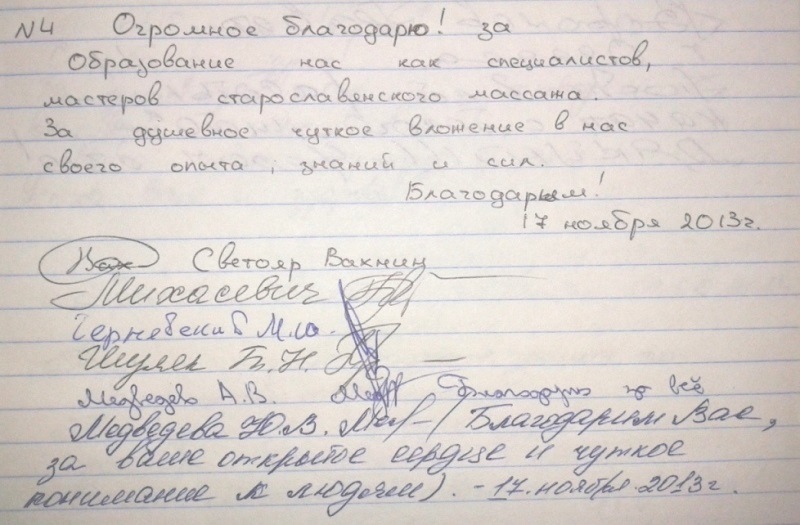 №4 Огромное благодарю! за
Образование нас как специалистов,
мастеров старославенского массажа.
За душевное чуткое вложение в нас
своего опыта, знаний и сил.
Благодарим!
17 ноября 2013г.
Светояр Вакнин
Михасевич
М.Ю.
Шуляк Б.Н.
Медведев А.В. Благодарю за всё
Медведева Ю.В. (Благодарим Вас,
за ваше открытое сердце и чуткое
понимание к людям). - 17.ноября.2013г.